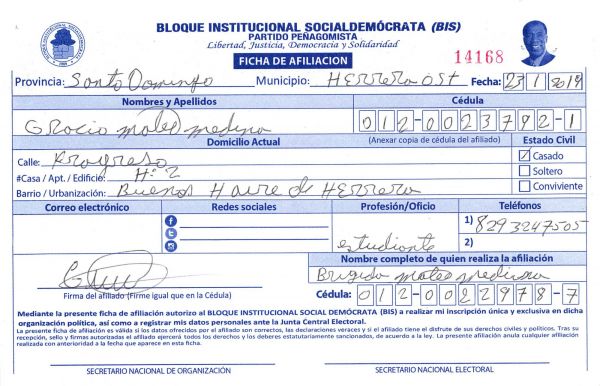 BLOQUE INSTITUCIONAL SOCIALDEMÓCRATA (BIS)
PARTIDO PEÑAGOMISTA
Libertad, Justicia, Democracia y Solidaridad
FICHA DE AFILIACION
14168
Provincia: Santo Domingo Municipio: HERRERA OST Fecha: 23 1 2019
Nombres y Apellidos Cédula
Gracio mateo medina 012-0023792-1
Domicilio Actual (Anexar copia de cédula del afiliado) Estado Civil
Calle: Progreso Casado
#Casa / Apt. / Edificio: Nº 2 Soltero
Barrio / Urbanización: Buenos Haire de HERRERA Conviviente
Correo electrónico Redes sociales Profesión/Oficio Teléfonos
estudiante 1) 8293247505
2)
Nombre completo de quien realiza la afiliación
Brigida mateo medina
Firma del afiliado (Firme igual que en la Cédula) Cédula: 012-0022978-7
Mediante la presente ficha de afiliación autorizo al BLOQUE INSTITUCIONAL SOCIAL DEMÓCRATA (BIS) a realizar mi inscripción única y exclusiva en dicha
organización política, así como a registrar mis datos personales ante la Junta Central Electoral.
La presente ficha de afiliación es válida si los datos ofrecidos por el afiliado son correctos, las declaraciones veraces y si el afiliado tiene el disfrute de sus derechos civiles y políticos. Tras su
recepción, sello y firmas autorizadas el afiliado ejercerá todos los derechos y los deberes estatutariamente sancionados, de acuerdo a la ley. La presente afiliación anula cualquier afiliación
realizada con anterioridad a la fecha que aparece en esta ficha.
SECRETARIO NACIONAL DE ORGANIZACIÓN SECRETARIO NACIONAL ELECTORAL